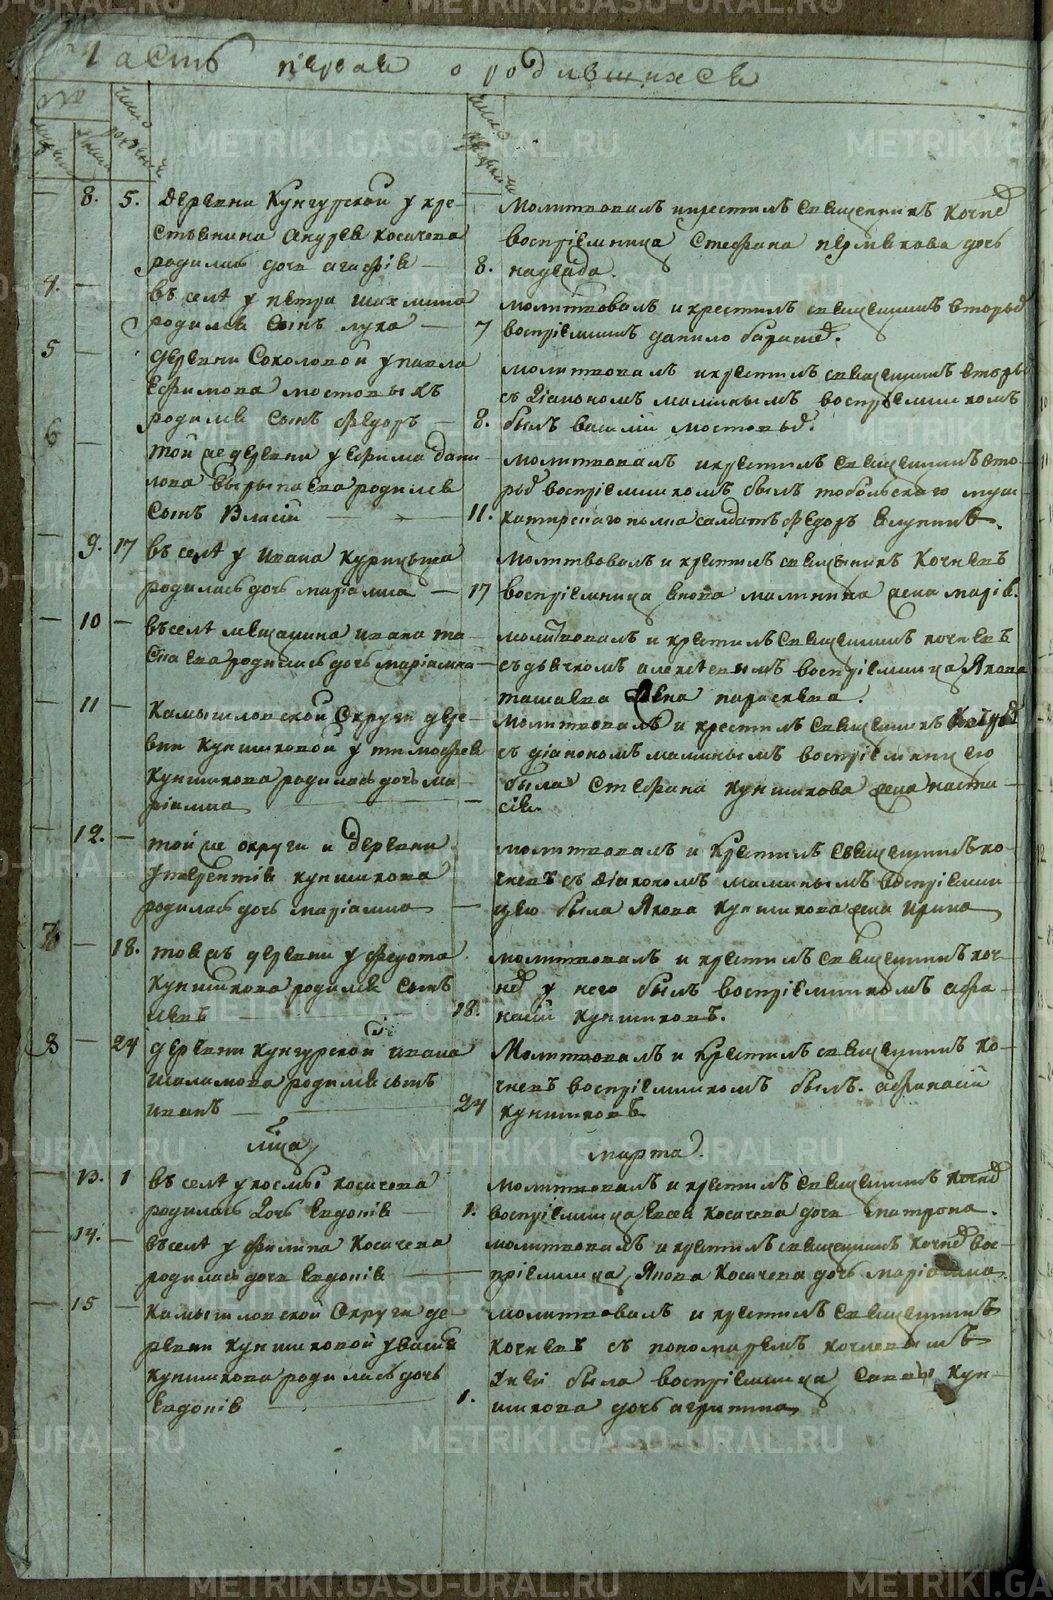 Часть первая о родившихся
8. 5. деревни Кунгурской у кре-
стьянина Андрея Косачева
родилась дочь агафiя —
молитвовалъ и крестилъ священникъ Кочнев
воспрiемница Стефана пермякова дочь
8. надежда.
4. — въ селѣ у петра шахмина
родился сынъ лука —
молитвовалъ и крестилъ священникъ вторыв
7 воспрiемникъ данило барашев.
5 — деревни Соколовой у павла
Ефимова мостовыхъ
родился сынъ федоръ —
молитвовалъ и крестилъ священникъ вторыв
съ дiакономъ маминымъ воспрiемникомъ
8. былъ василiй мостовыв.
6 — той же деревни у Ефима дани-
лова родился
сынъ Власiй —
молитвовалъ и крестилъ священникъ вто-
рыв воспрiемникомъ былъ тобольскаго муш-
11. катерскаго полка салдатъ федоръ
— 9. 17 въ селѣ у Ивана
родилась дочь марiамна —
молитвовалъ и крестилъ священникъ Кочневъ
17 воспрiемница малинина жена марiя.
— 10 — въ селѣ мещанина ивана та-
шаева родилась дочь марiамна —
молитвовалъ и крестилъ священникъ кочневъ
съ дьячкомъ алексѣевымъ воспрiемница Якова
ташаева жена парасковья.
— 11 — Камышловской Округи дере-
вни Куншиковой у тимофея
Куншикова родилась дочь ма-
рiамна —
молитвовалъ и крестилъ священникъ Кочнев
съ дiакономъ маминымъ воспрiемницею
была Стефана куншикова жена наста-
сiя.
— 12. — той же округи и деревни
у терентiя куншикова
родилась дочь марiамна —
молитвовалъ и крестилъ священникъ ко-
чневъ съ дiакономъ маминымъ воспрiемни-
цею была Якова Куншикова жена Ирина
7 — 18. тояжъ деревни у федота
Куншикова родился сынъ
левъ —
молитвовалъ и крестилъ священникъ коч-
нев у него былъ воспрiемникомъ афа-
18. насiй Куншиковъ.
8 — 24 деревни кунгурской ивана
шаламова родился сынъ
иванъ —
Молитвовалъ и крестилъ священникъ ко-
чневъ воспрiемникомъ былъ афанасiй
24 куншиковъ
мца марта.
— 13. 1 въ селѣ у космы косачева
родилась дочь Евдокiя —
молитвовалъ и крестилъ священникъ кочнев
1. воспрiемница Косачева дочь матрона.
— 14. — въ селѣ у филипа Косачева
родилась дочь Евдокiя —
молитвовалъ и крестилъ священникъ кочнев вос-
прiемница Якова Косачева дочь марiамна
— 15 — камышловской Округи де-
ревни куншиковой у
куншикова родилась дочь
Евдокiя —
молитвовалъ и крестилъ священникъ
кочневъ съ пономаремъ кочневымъ
у неи была воспрiемница саввы кун-
1. шикова дочь агрипина
METRIKI.GASO-URAL.RU